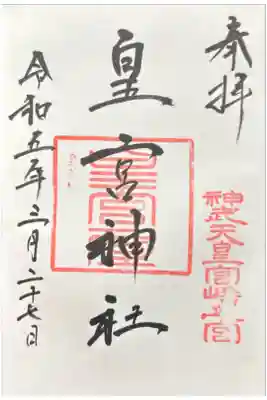 奉拝
神武天皇宮
皇宮神社
令和五年三月二十七日